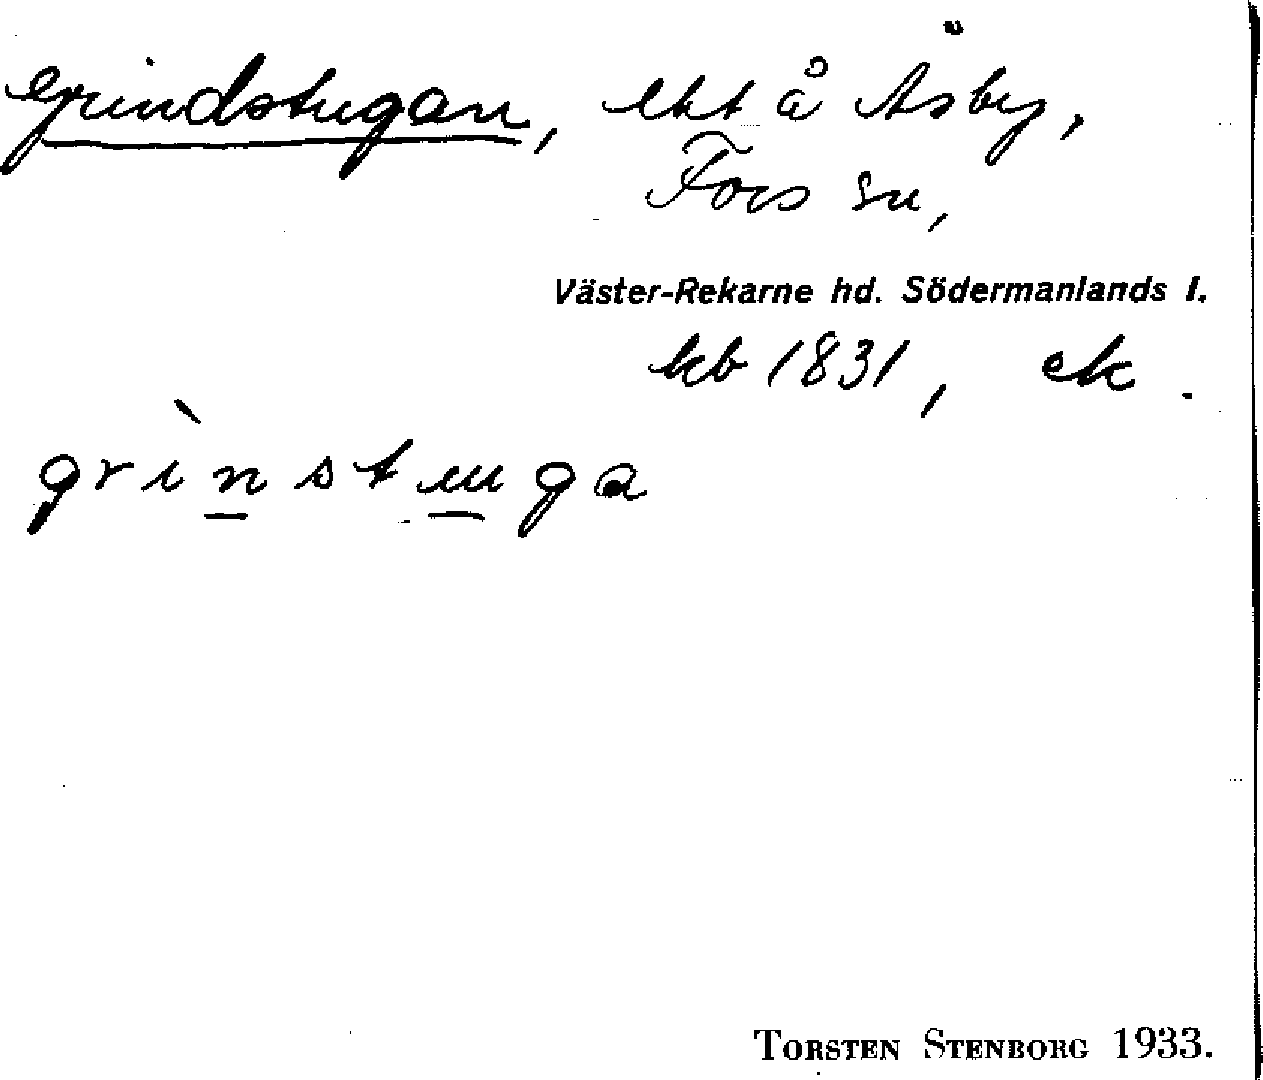 Grindstugan, lht å Åsby,
Fors sn,
Väster-Rekarne hd. Södermanlands l.
kb 1831, ek.
grìnstuga
TORSTEN STENBORG 1933.